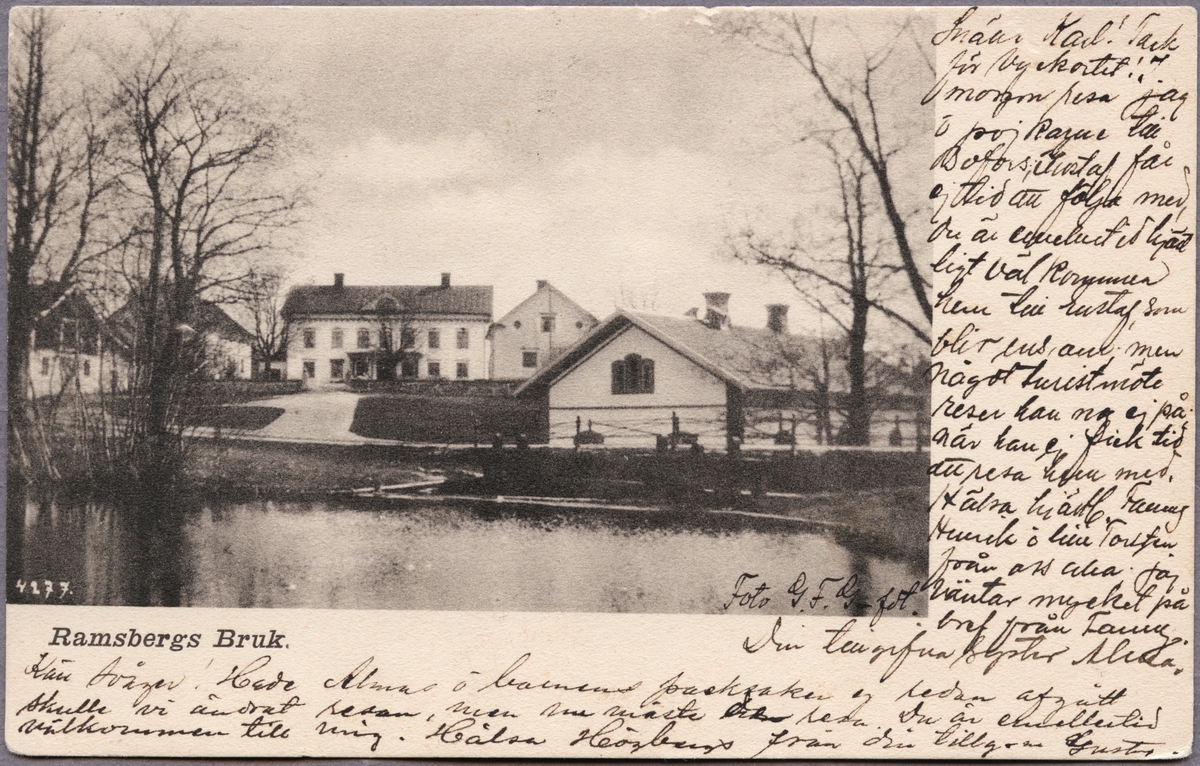 Snälle Karl! Tack
för Vykortet!!
morgon resa jag
ö pojkarne till
Bofors, Gustaf får
ej tid att följa med,
du är emellertid hjärt
ligt välkommen
hem till Gustaf, som
blir ensam. men
något turistmöte
reser han nog ej på,
när han ej fick tid
att resa hem med.
Hälsa hjärtl. Fanny
Henrik ö lille Torsten
från oss alla. jag
väntar mycket på
bref från Fanny.
Din tillgifna syster Alma.
4277.
Foto G. F. G. fot.
Ramsbergs Bruk.
Käre Svåger! Hade Almas ö barnens packsaker ej redan afgått
skulle vi ändrat resan, men nu måste resa. Du är emellertid
välkommen till mig. Hälsa Högbergs från din tillgifne Gustav